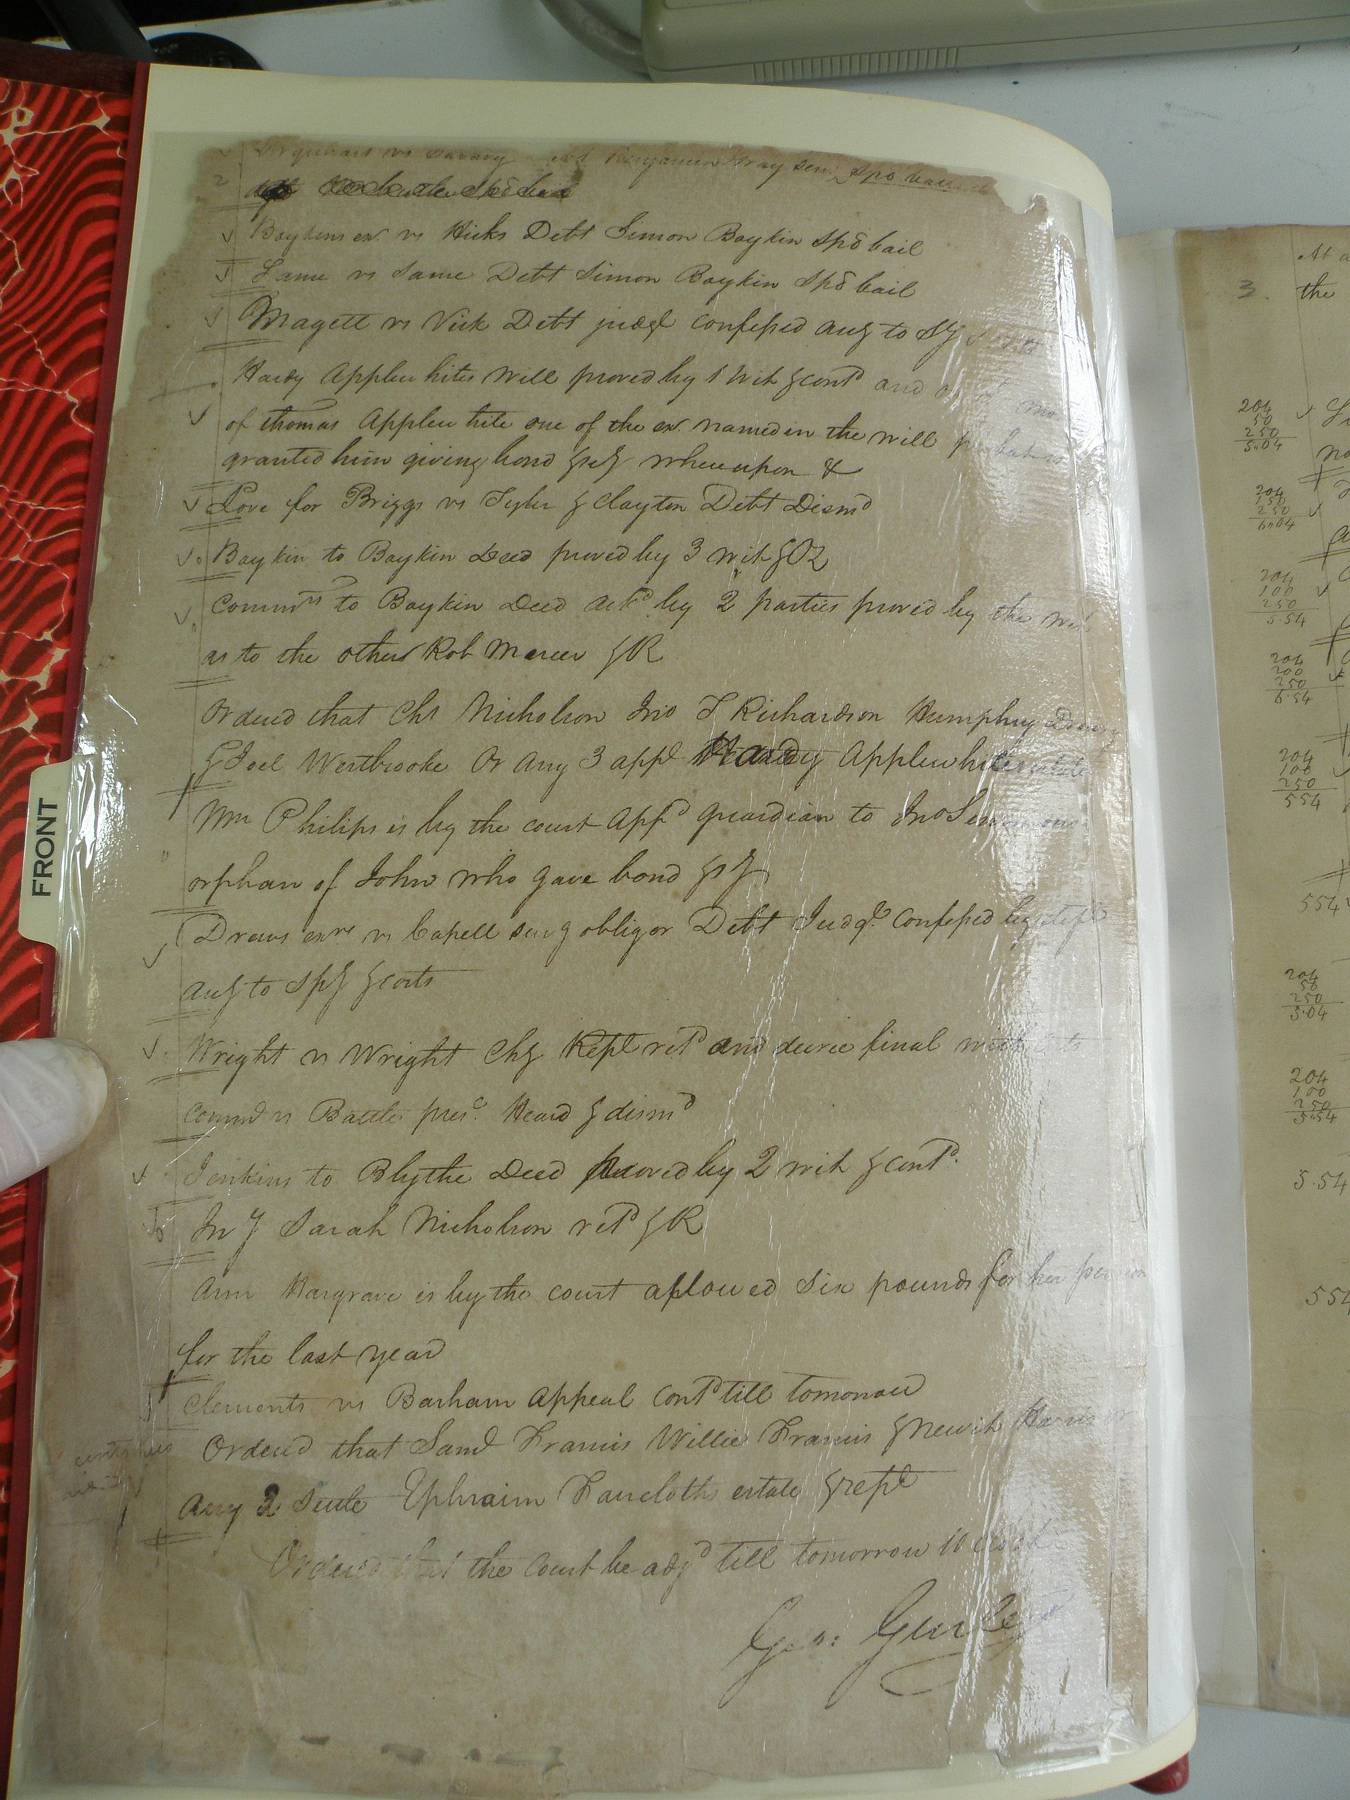 Urquhart vs Savary Benjamin Gray Senr Spō bail
Boykins exr vs Hicks Debt Simon Boykin Spō bail
Same vs Same Debt Simon Boykin Spō bail
Magett vs Vick Debt judgt confessed acg to Sy
Hardy Applewhites Will proved by 1 wit & contd and on mo
of thomas Applewhite one of the exr named in the will probat is
granted him giving bond & sy whereupon &
Love for Briggs vs Tyler & Clayton Debt Dismd
Boykin to Boykin Deed proved by 3 wit & OR
Commrs to Boykin Deed ackd by 2 parties proved by the wit
as to the other Rob Mercer & R
Ordered that Chs Nicholson Jno T Richardson Humphry Drewry
& Joel Westbrooke Or Any 3 appt Hardy Applewhites estate
Wm Philips is by the court appd guardian to Jno
orphan of John who gave bond & sy
Drews exrs vs Capell surv g obligor Debt Judgt confessed by deft
acg to spy & costs
Wright vs Wright Chy Rept retd and decree final with costs
Commth vs Battle prest Heard & dismd
Jenkins to Blythe Deed proved by 2 wit & contd
Invy Sarah Nicholson retd & R
Ann Hargrave is by the court allowed Six pounds for her pension
for the last year
Clements vs Barham Appeal contd till tomorrow
Ordered that Saml Francis Willie Francis & Newit Harris or
Any 2 Settle Ephraim Faircloths estate & rept
Ordered that the Court be adjd till tomorrow 10 Clock
Geo: Gurley
FRONT
3.
At a
the
204
50
250
5.04
204
150
250
6.04
204
100
250
5.54
204
200
250
6.54
204
100
250
554
554
204
50
250
5.04
204
100
250
5.54
5.54
554